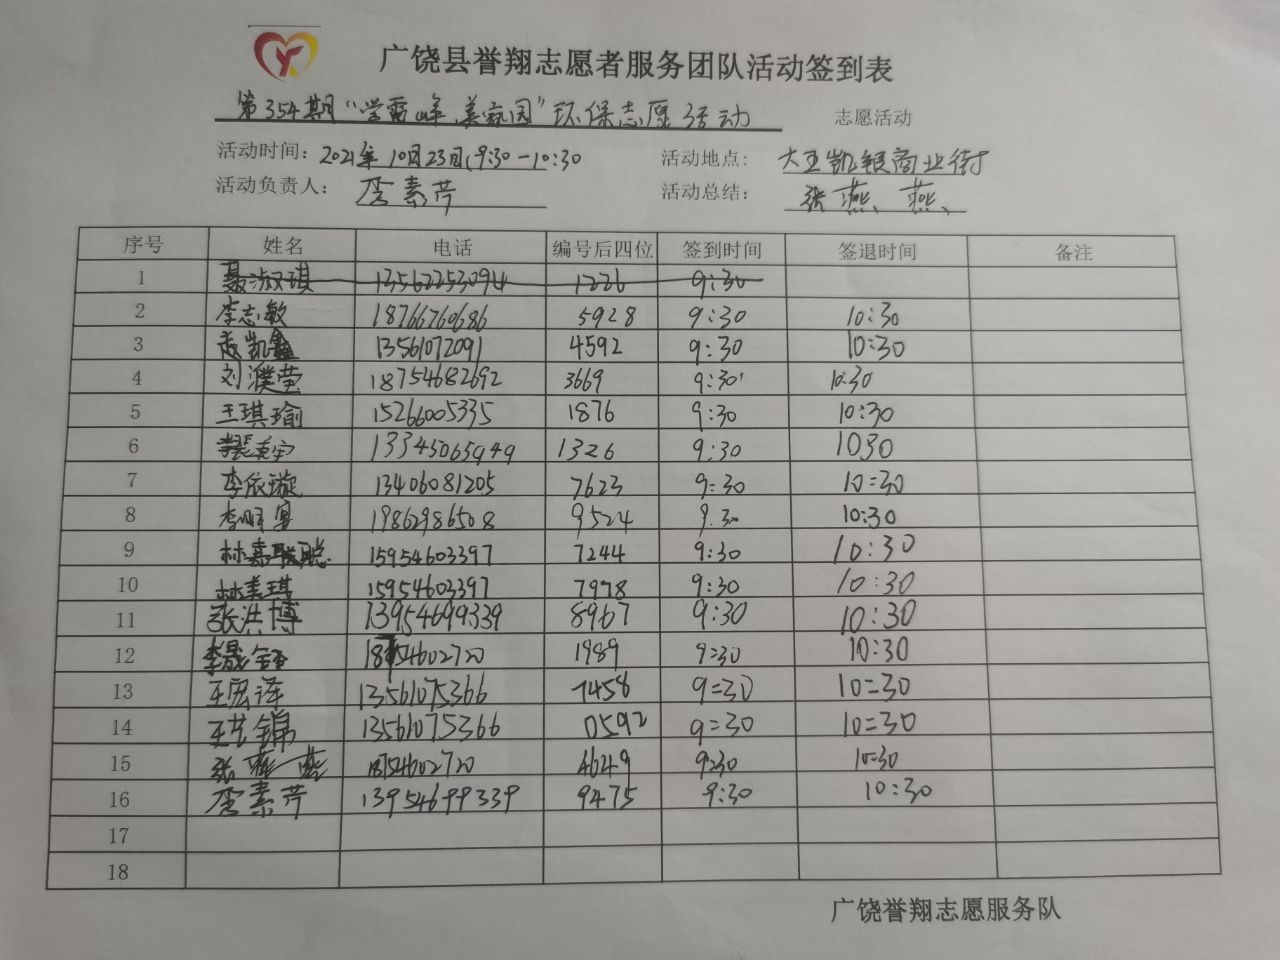 广饶县誉翔志愿者服务团队活动签到表
第354期“学雷峰 美家园”环保志愿活动 志愿活动
活动时间：2021年10月23日(9:30-10:30 活动地点： 大王凯银商业街
活动负责人： 李素芹 活动总结： 张燕、燕、
序号 姓名 电话 编号后四位 签到时间 签退时间 备注
1 聂淑琪 135622553094 1226 9:30
2 李志敏 18766760686 5928 9:30 10:30
3 凯鑫 13561072091 4592 9:30 10:30
4 刘濮莹 18754682692 3669 9:30 10:30
5 王琪瑜 15266005335 1876 9:30 10:30
6 13345065949 1326 9:30 1030
7 李依璇 13406081205 7623 9:30 10=30
8 李明宴 19862986508 9524 9.30 10:30
9 林嘉聪 15954603397 7244 9:30 10:30
10 林美琪 15954603397 7978 9:30 10:30
11 张洪博 13954699339 8967 9:30 10:30
12 李晟 18754602720 1989 9=30 10:30
13 王宏泽 13561075366 7458 9=30 10=30
14 王艺锦 13561075366 0592 9=30 10=30
15 张燕燕 18754602720 4649 9:30 10:30
16 李素芹 13954699339 9475 9:30 10:30
17
18
广饶誉翔志愿服务队